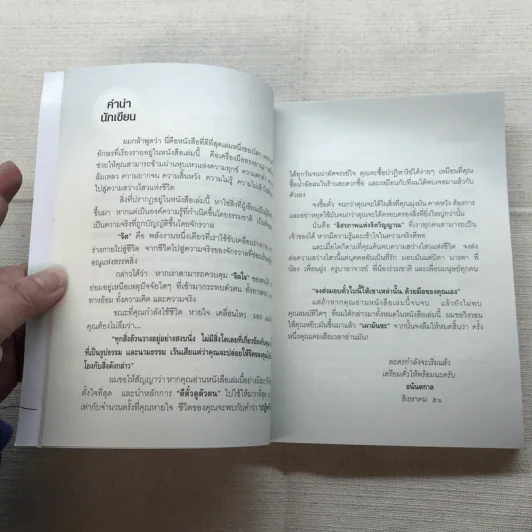 คำนำ
นักเขียน
ผมกล้าพูดว่า นี่คือหนังสือที่ดีที่สุดเล่มหนึ่งของโลก
อักษรที่เรียงรายอยู่ในหนังสือเล่มนี้ คือเครื่องมือ
ช่วยให้คุณสามารถข้ามผ่านหุบเหวแห่งความทุกข์
ล้มเหลว ความยากจน ความสิ้นหวัง ความไม่รู้
ไปสู่ความสว่างไสวแห่งชีวิต
สิ่งที่ปรากฏอยู่ในหนังสือเล่มนี้ หาใช่สิ่งที่ผู้เขียน
ขึ้นมา หากแต่เป็นองค์ความรู้ที่กำเนิดขึ้นโดยธรรมชาติ
เป็นความจริงที่ถูกบัญญัติขึ้นโดยจักรวาล
"จิต" คือ พลังงานหนึ่งเดียวที่เราใช้ขับเคลื่อนร่างกาย
ร่างกายไปสู่ชีวิต จากชีวิตไปสู่ความจริงของจักรวาล
อณูแห่งสรรพสิ่ง
กล่าวได้ว่า หากเราสามารถควบคุม "จิตใจ" ของตน
ย่อมอยู่เหนือเหตุปัจจัยใดๆ ที่เข้ามากระทบตัวตน
ทางอ้อม ทั้งความคิด และความจริง
ขณะที่กำลังใช้ชีวิต หายใจ เคลื่อนไหว มอง
คุณต้องไม่ลืมว่า...
"ทุกสิ่งล้วนวางอยู่อย่างสงบนิ่ง ไม่มีสิ่งใดเลยที่เกี่ยวข้องกับ
ที่เป็นรูปธรรม และนามธรรม เว้นเสียแต่ว่าคุณจะปล่อยให้จิตของคุณ
โยงกับสิ่งดังกล่าว"
ผมขอให้สัญญาว่า หากคุณอ่านหนังสือเล่มนี้อย่างมีสมาธิ
ตั้งใจที่สุด และนำหลักการ "ดีตั๋วดูตัวตน" ไปใช้ให้มากที่สุด
เท่ากับจำนวนครั้งที่คุณหายใจ ชีวิตของคุณจะพบกับคำว่า
ได้ทุกวันจนน่าอัศจรรย์ใจ คุณจะซื้อปาฏิหาริย์ได้ง่ายๆ เหมือนที่คุณ
ซื้อน้ำอัดลมในร้านสะดวกซื้อ และเหมือนกับที่ผมได้พบเจอมาแล้วกับ
ตัวเอง
จงซื้อตั๋ว จนกว่าคุณจะได้ไปในสิ่งที่คุณมุ่งมั่น คาดหวัง ต้องการ
และอย่าหยุดใช้มันจนกว่าคุณจะได้ครอบครองสิ่งที่ยิ่งใหญ่กว่านั้น
นั่นคือ "อิสรภาพแห่งจิตวิญญาณ" ที่เราทุกคนสามารถเป็น
เจ้าของได้ หากมีความรู้และเข้าใจในความจริงดีพอ
และเมื่อใดก็ตามที่คุณค้นพบความสว่างไสวแห่งชีวิต จงส่ง
ต่อความสว่างไสวนี้แด่บุคคลอันเป็นที่รัก มอบมันแด่บิดา มารดา พี่
น้อง เพื่อนฝูง ครูบาอาจารย์ พี่น้องร่วมชาติ และเพื่อนมนุษย์ทุกคน
"จงส่งมอบตั๋วใบนี้ให้เขาเหล่านั้น ด้วยมือของคุณเอง"
แต่ถ้าหากคุณอ่านหนังสือเล่มนี้จนจบ แล้วยังไม่พบ
คุณสมบัติใดๆ ที่ผมได้กล่าวมาทั้งหมดในหนังสือเล่มนี้ ผมขอวิงวอน
ให้คุณหยิบมันขึ้นมาแล้ว "เผามันซะ" จากนั้นจงลืมให้หมดสิ้นว่า ครั้ง
หนึ่งคุณเคยเสียเวลาอ่านมัน!
ละครกำลังจะเริ่มแล้ว
เตรียมตั๋วให้พร้อมนะครับ
อนันตกาล
สิงหาคม ๕๘